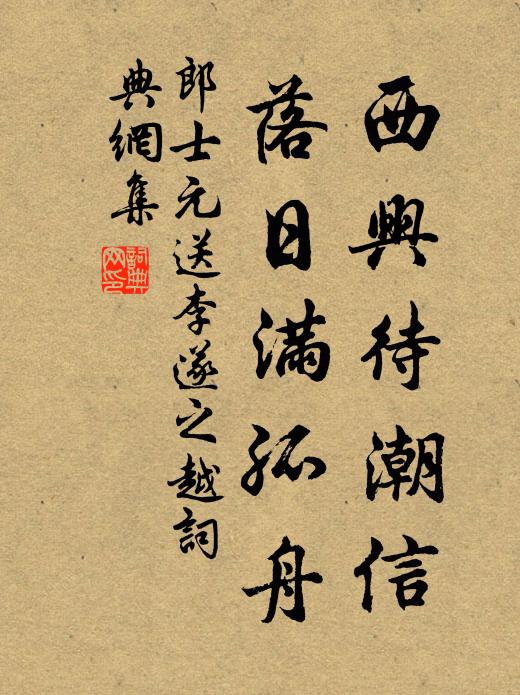 西興待潮信
落日滿孤舟
郎士元送李遂之越詞
典網集
詞典網印